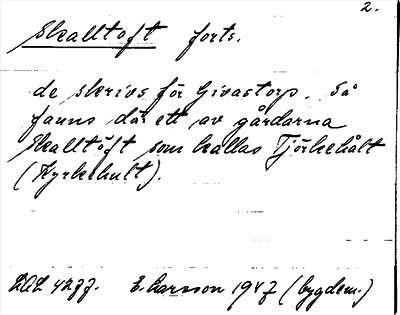 2.
Skalltoft forts.
de skrivs för Givastorp. Så
fanns där ett av gårdarna
Skalltöft som kallas Tjörkehålt
(Kyrkhult).
LAL 4277. E. Larsson 1947 (bygdem.)